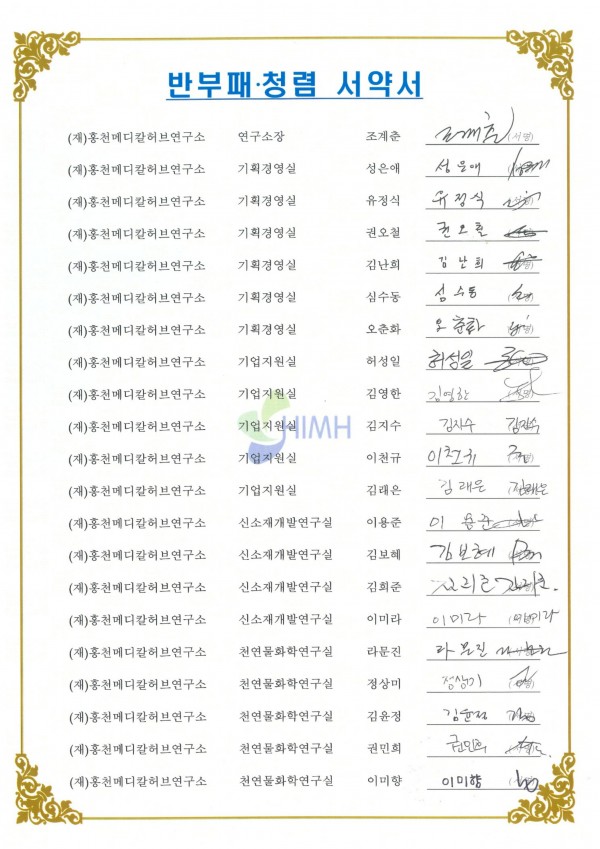 반부패·청렴 서약서
(재)홍천메디칼허브연구소 연구소장 조계춘 조계춘 (서명)
(재)홍천메디칼허브연구소 기획경영실 성은애 성은애
(재)홍천메디칼허브연구소 기획경영실 유정식 유정식
(재)홍천메디칼허브연구소 기획경영실 권오철 권오철
(재)홍천메디칼허브연구소 기획경영실 김난희 김난희
(재)홍천메디칼허브연구소 기획경영실 심수동 심수동
(재)홍천메디칼허브연구소 기획경영실 오춘화 오춘화
(재)홍천메디칼허브연구소 기업지원실 허성일 허성일
(재)홍천메디칼허브연구소 기업지원실 김영한 김영한
HIMH
(재)홍천메디칼허브연구소 기업지원실 김지수 김지수 김지수
(재)홍천메디칼허브연구소 기업지원실 이천규 이천규
(재)홍천메디칼허브연구소 기업지원실 김래은 김래은 김래은
(재)홍천메디칼허브연구소 신소재개발연구실 이용준 이용준
(재)홍천메디칼허브연구소 신소재개발연구실 김보혜 김보혜
(재)홍천메디칼허브연구소 신소재개발연구실 김희준
(재)홍천메디칼허브연구소 신소재개발연구실 이미라 이미라 이미라
(재)홍천메디칼허브연구소 천연물화학연구실 라문진 라문진
(재)홍천메디칼허브연구소 천연물화학연구실 정상미 정상미
(재)홍천메디칼허브연구소 천연물화학연구실 김윤정 김윤정
(재)홍천메디칼허브연구소 천연물화학연구실 권민희 권민희
(재)홍천메디칼허브연구소 천연물화학연구실 이미향 이미향